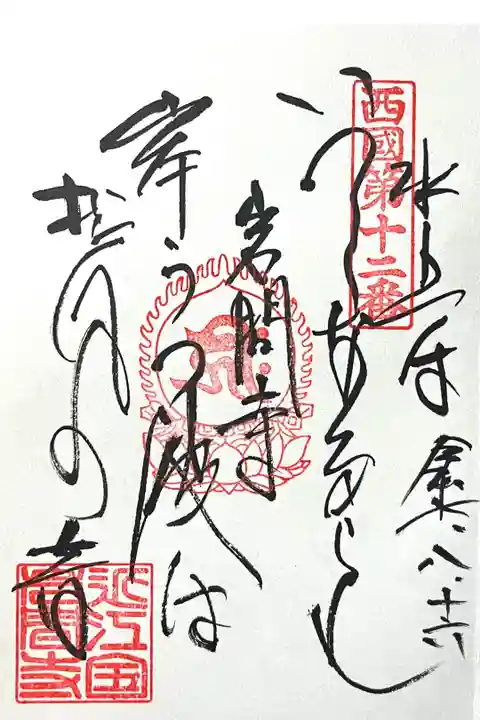 西國第十二番
水上は
八、十六
いづくなるらん
岩間寺
岸うつ波は
松風の音
近江国
岩間寺